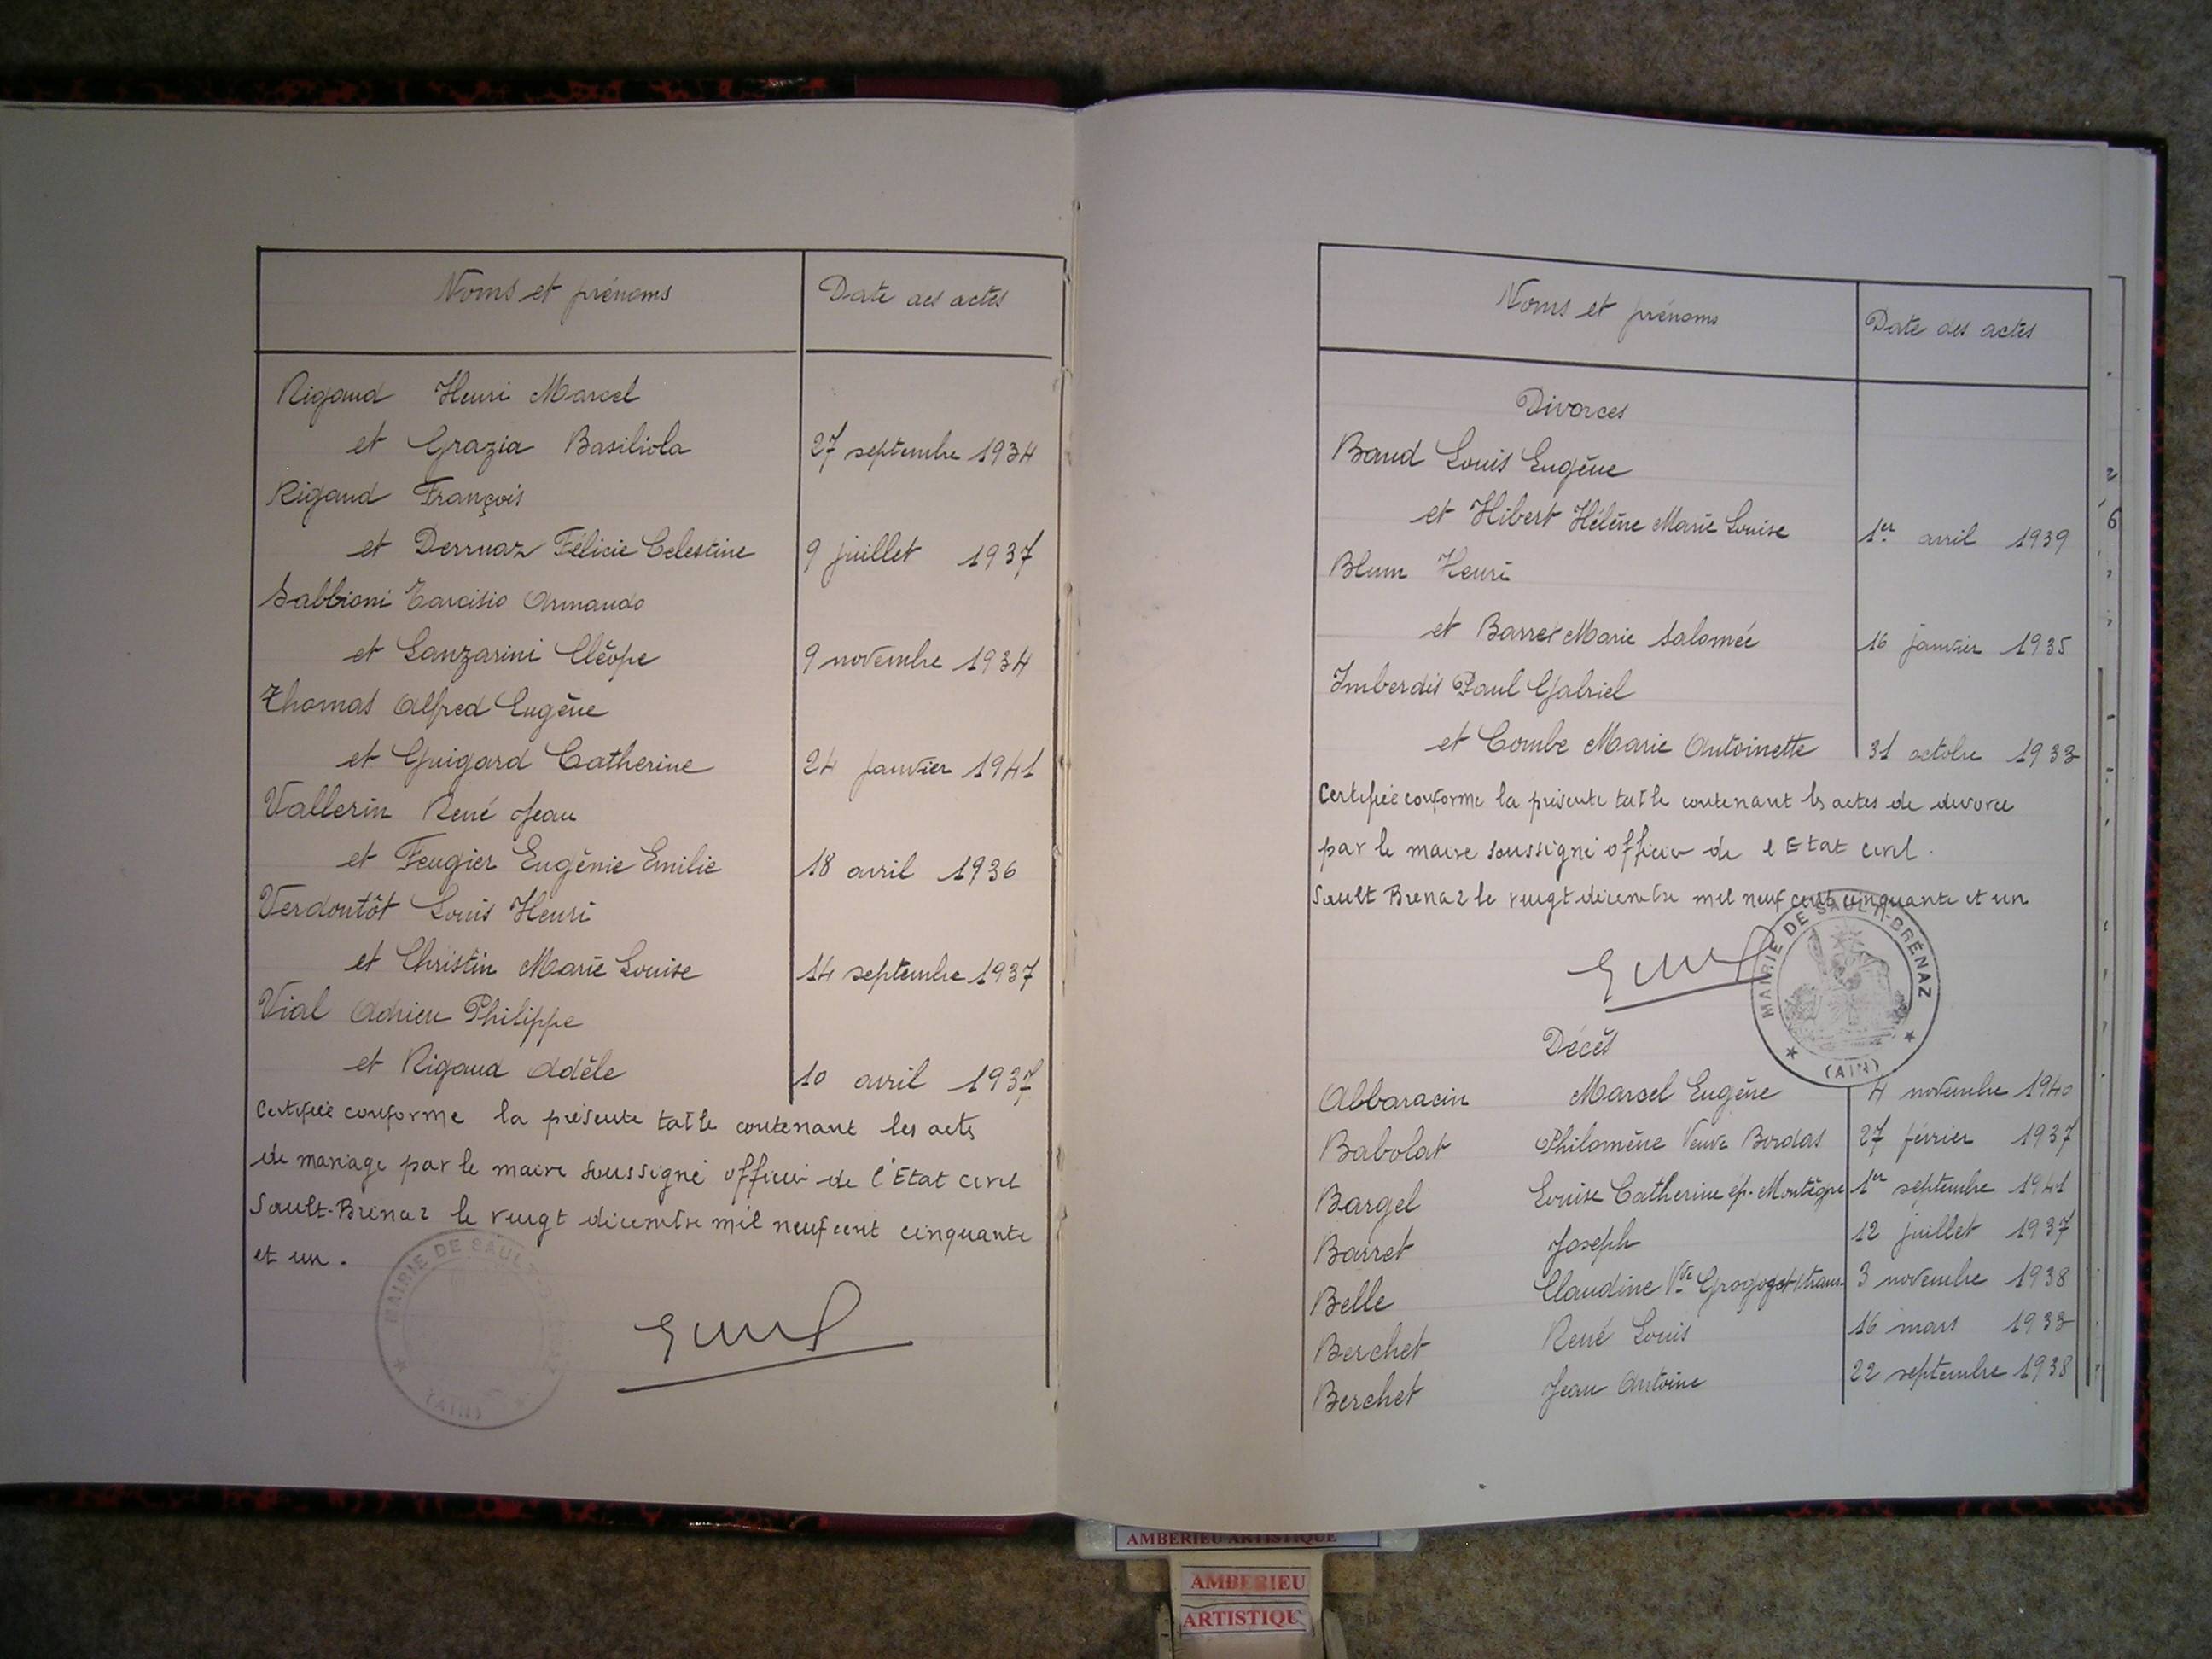 Noms et prénoms Date des actes
Rigaud Henri Marcel
et Grazia Basiliola 27 septembre 1934
Rigaud François
et Derruaz Félicie Celestine 9 juillet 1937
Sabbioni Tarcisio Armando
et Lanzarini Cléope 9 novembre 1934
Thomas Alfred Eugène
et Guigard Catherine 24 janvier 1941
Vallerin René Jean
et Feugier Eugènie Emilie 18 avril 1936
Verdontôt Louis Henri
et Christin Marie Louise 14 septembre 1937
Vial Adrien Philippe
et Rigaud Adèle 10 avril 1937
Certifiée conforme la présente table contenant les actes
de mariage par le maire soussigné officier de l'Etat civil
Sault-Brénaz le vingt décembre mil neuf cent cinquante
et un.
MAIRIE DE SAULT-BRÉNAZ
(AIN)
Noms et prénoms Date des actes
Divorces
Baud Louis Eugène
et Hibert Hélène Marie Louise 1er avril 1939
Blum Henri
et Barret Marie Salomée 16 janvier 1935
Imberdis Paul Gabriel
et Combe Marie Antoinette 31 octobre 1933
Certifiée conforme la présente table contenant les actes de divorce
par le maire soussigné officier de l Etat civil.
Sault Brenaz le vingt décembre mil neuf cent cinquante et un
MAIRIE DE SAULT-BRÉNAZ
(AIN)
Décès
Abbaracin Marcel Eugène 4 novembre 1940
Babolat Philomène Veuve Bordas 27 février 1937
Bargel Louise Catherine ép. Montègre 1er septembre 1941
Barret Joseph 12 juillet 1937
Belle Claudine Vve 3 novembre 1938
Berchet René Louis 16 mars 1933
Berchet Jean Antoine 22 septembre 1938
AMBERIEU ARTISTIQUE
AMBERIEU
ARTISTIQU